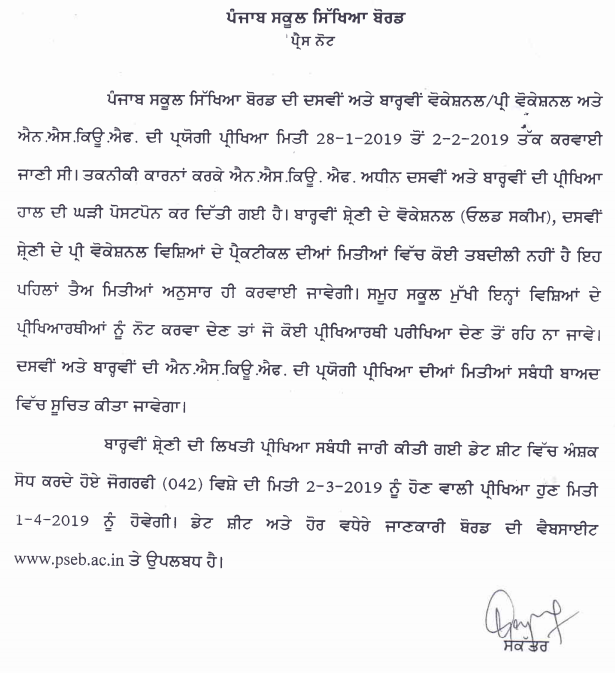 ਪੰਜਾਬ ਸਕੂਲ ਸਿੱਖਿਆ ਬੋਰਡ
ਪ੍ਰੈਸ ਨੋਟ
ਪੰਜਾਬ ਸਕੂਲ ਸਿੱਖਿਆ ਬੋਰਡ ਦੀ ਦਸਵੀਂ ਅਤੇ ਬਾਰ੍ਹਵੀਂ ਵੋਕੇਸ਼ਨਲ/ਪ੍ਰੀ ਵੋਕੇਸ਼ਨਲ ਅਤੇ
ਐਨ.ਐਸ.ਕਿਊ.ਐਫ. ਦੀ ਪ੍ਰਯੋਗੀ ਪ੍ਰੀਖਿਆ ਮਿਤੀ 28-1-2019 ਤੋਂ 2-2-2019 ਤੱਕ ਕਰਵਾਈ
ਜਾਣੀ ਸੀ। ਤਕਨੀਕੀ ਕਾਰਨਾਂ ਕਰਕੇ ਐਨ.ਐਸ.ਕਿਊ. ਐਫ. ਅਧੀਨ ਦਸਵੀਂ ਅਤੇ ਬਾਰ੍ਹਵੀਂ ਦੀ ਪ੍ਰੀਖਿਆ
ਹਾਲ ਦੀ ਘੜੀ ਪੋਸਟਪੋਨ ਕਰ ਦਿੱਤੀ ਗਈ ਹੈ। ਬਾਰ੍ਹਵੀਂ ਸ਼੍ਰੇਣੀ ਦੇ ਵੋਕੇਸ਼ਨਲ (ਓਲਡ ਸਕੀਮ), ਦਸਵੀਂ
ਸ਼੍ਰੇਣੀ ਦੇ ਪ੍ਰੀ ਵੋਕੇਸ਼ਨਲ ਵਿਸ਼ਿਆਂ ਦੇ ਪ੍ਰੈਕਟੀਕਲ ਦੀਆਂ ਮਿਤੀਆਂ ਵਿੱਚ ਕੋਈ ਤਬਦੀਲੀ ਨਹੀਂ ਹੈ ਇਹ
ਪਹਿਲਾਂ ਤੈਅ ਮਿਤੀਆਂ ਅਨੁਸਾਰ ਹੀ ਕਰਵਾਈ ਜਾਵੇਗੀ। ਸਮੂਹ ਸਕੂਲ ਮੁੱਖੀ ਇਨ੍ਹਾਂ ਵਿਸ਼ਿਆਂ ਦੇ
ਪ੍ਰੀਖਿਆਰਥੀਆਂ ਨੂੰ ਨੋਟ ਕਰਵਾ ਦੇਣ ਤਾਂ ਜੋ ਕੋਈ ਪ੍ਰੀਖਿਆਰਥੀ ਪਰੀਖਿਆ ਦੇਣ ਤੋਂ ਰਹਿ ਨਾ ਜਾਵੇ।
ਦਸਵੀਂ ਅਤੇ ਬਾਰ੍ਹਵੀਂ ਦੀ ਐਨ.ਐਸ.ਕਿਊ.ਐਫ. ਦੀ ਪ੍ਰਯੋਗੀ ਪ੍ਰੀਖਿਆ ਦੀਆਂ ਮਿਤੀਆਂ ਸਬੰਧੀ ਬਾਅਦ
ਵਿੱਚ ਸੂਚਿਤ ਕੀਤਾ ਜਾਵੇਗਾ।
ਬਾਰ੍ਹਵੀਂ ਸ਼੍ਰੇਣੀ ਦੀ ਲਿਖਤੀ ਪ੍ਰੀਖਿਆ ਸਬੰਧੀ ਜਾਰੀ ਕੀਤੀ ਗਈ ਡੇਟ ਸ਼ੀਟ ਵਿੱਚ ਅੰਸ਼ਕ
ਸੋਧ ਕਰਦੇ ਹੋਏ ਜੋਗਰਫੀ (042) ਵਿਸ਼ੇ ਦੀ ਮਿਤੀ 2-3-2019 ਨੂੰ ਹੋਣ ਵਾਲੀ ਪ੍ਰੀਖਿਆ ਹੁਣ ਮਿਤੀ
1-4-2019 ਨੂੰ ਹੋਵੇਗੀ। ਡੇਟ ਸ਼ੀਟ ਅਤੇ ਹੋਰ ਵਧੇਰੇ ਜਾਣਕਾਰੀ ਬੋਰਡ ਦੀ ਵੈਬਸਾਈਟ
www.pseb.ac.in ਤੇ ਉਪਲਬਧ ਹੈ।
ਸਕੱਤਰ